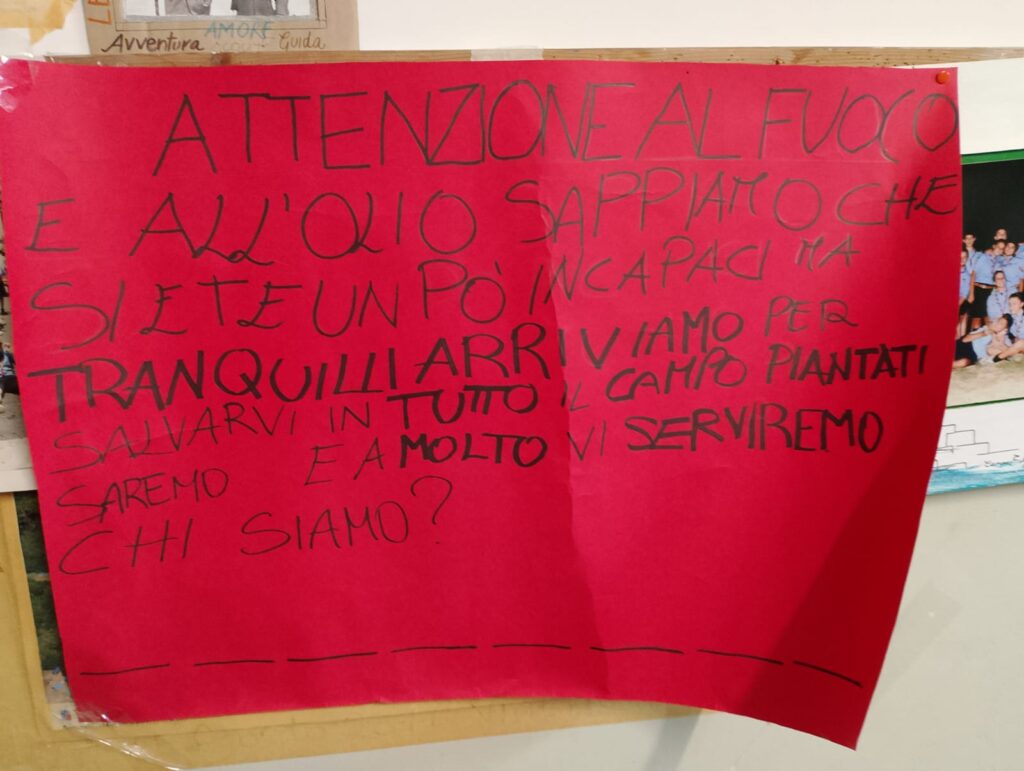 Avventura AMORE Guida
ATTENZIONE AL FUOCO
E ALL'OLIO SAPPIAMO CHE
SIETE UN PÒ INCAPACI MA
TRANQUILLI ARRIVIAMO PER
SALVARVI IN TUTTO IL CAMPO PIANTATI
SAREMO E A MOLTO VI SERVIREMO
CHI SIAMO?